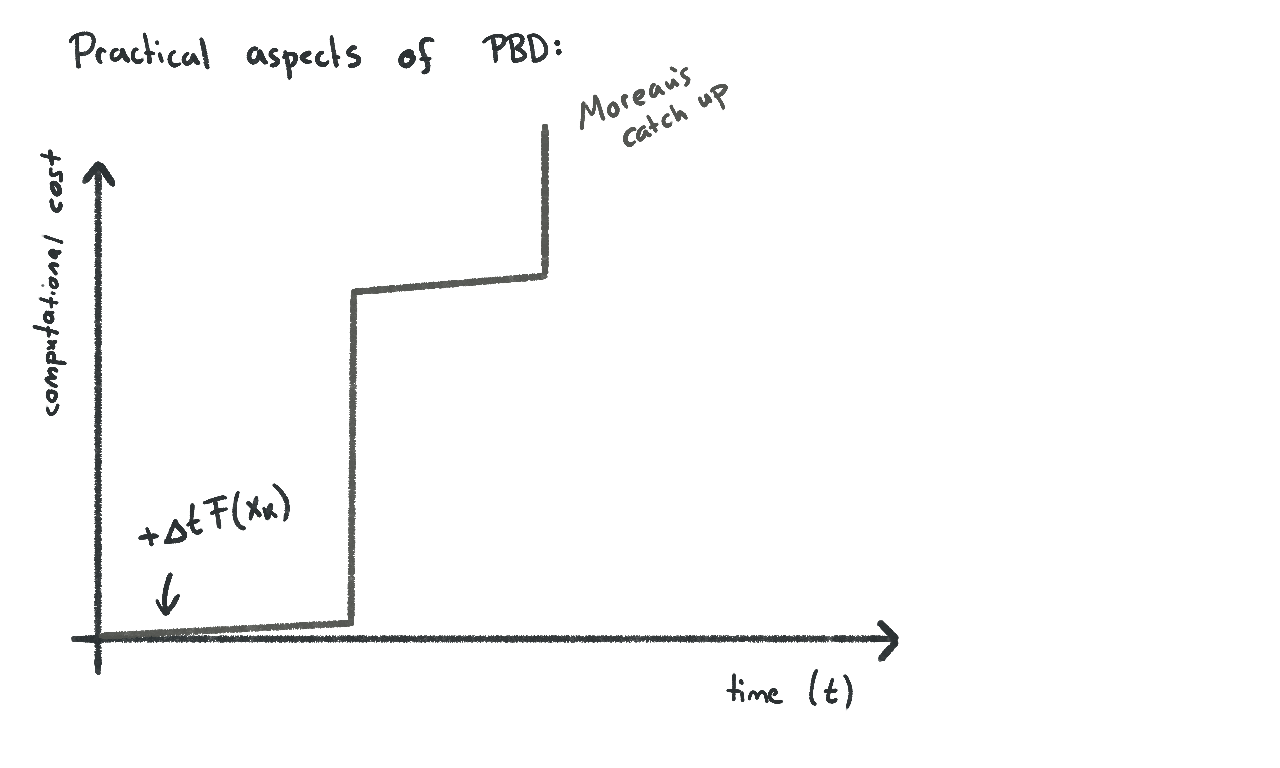 Practical aspects of PBD:
Moreau's
catch up
computational cost
+ΔtF(xₖ)
time (t)